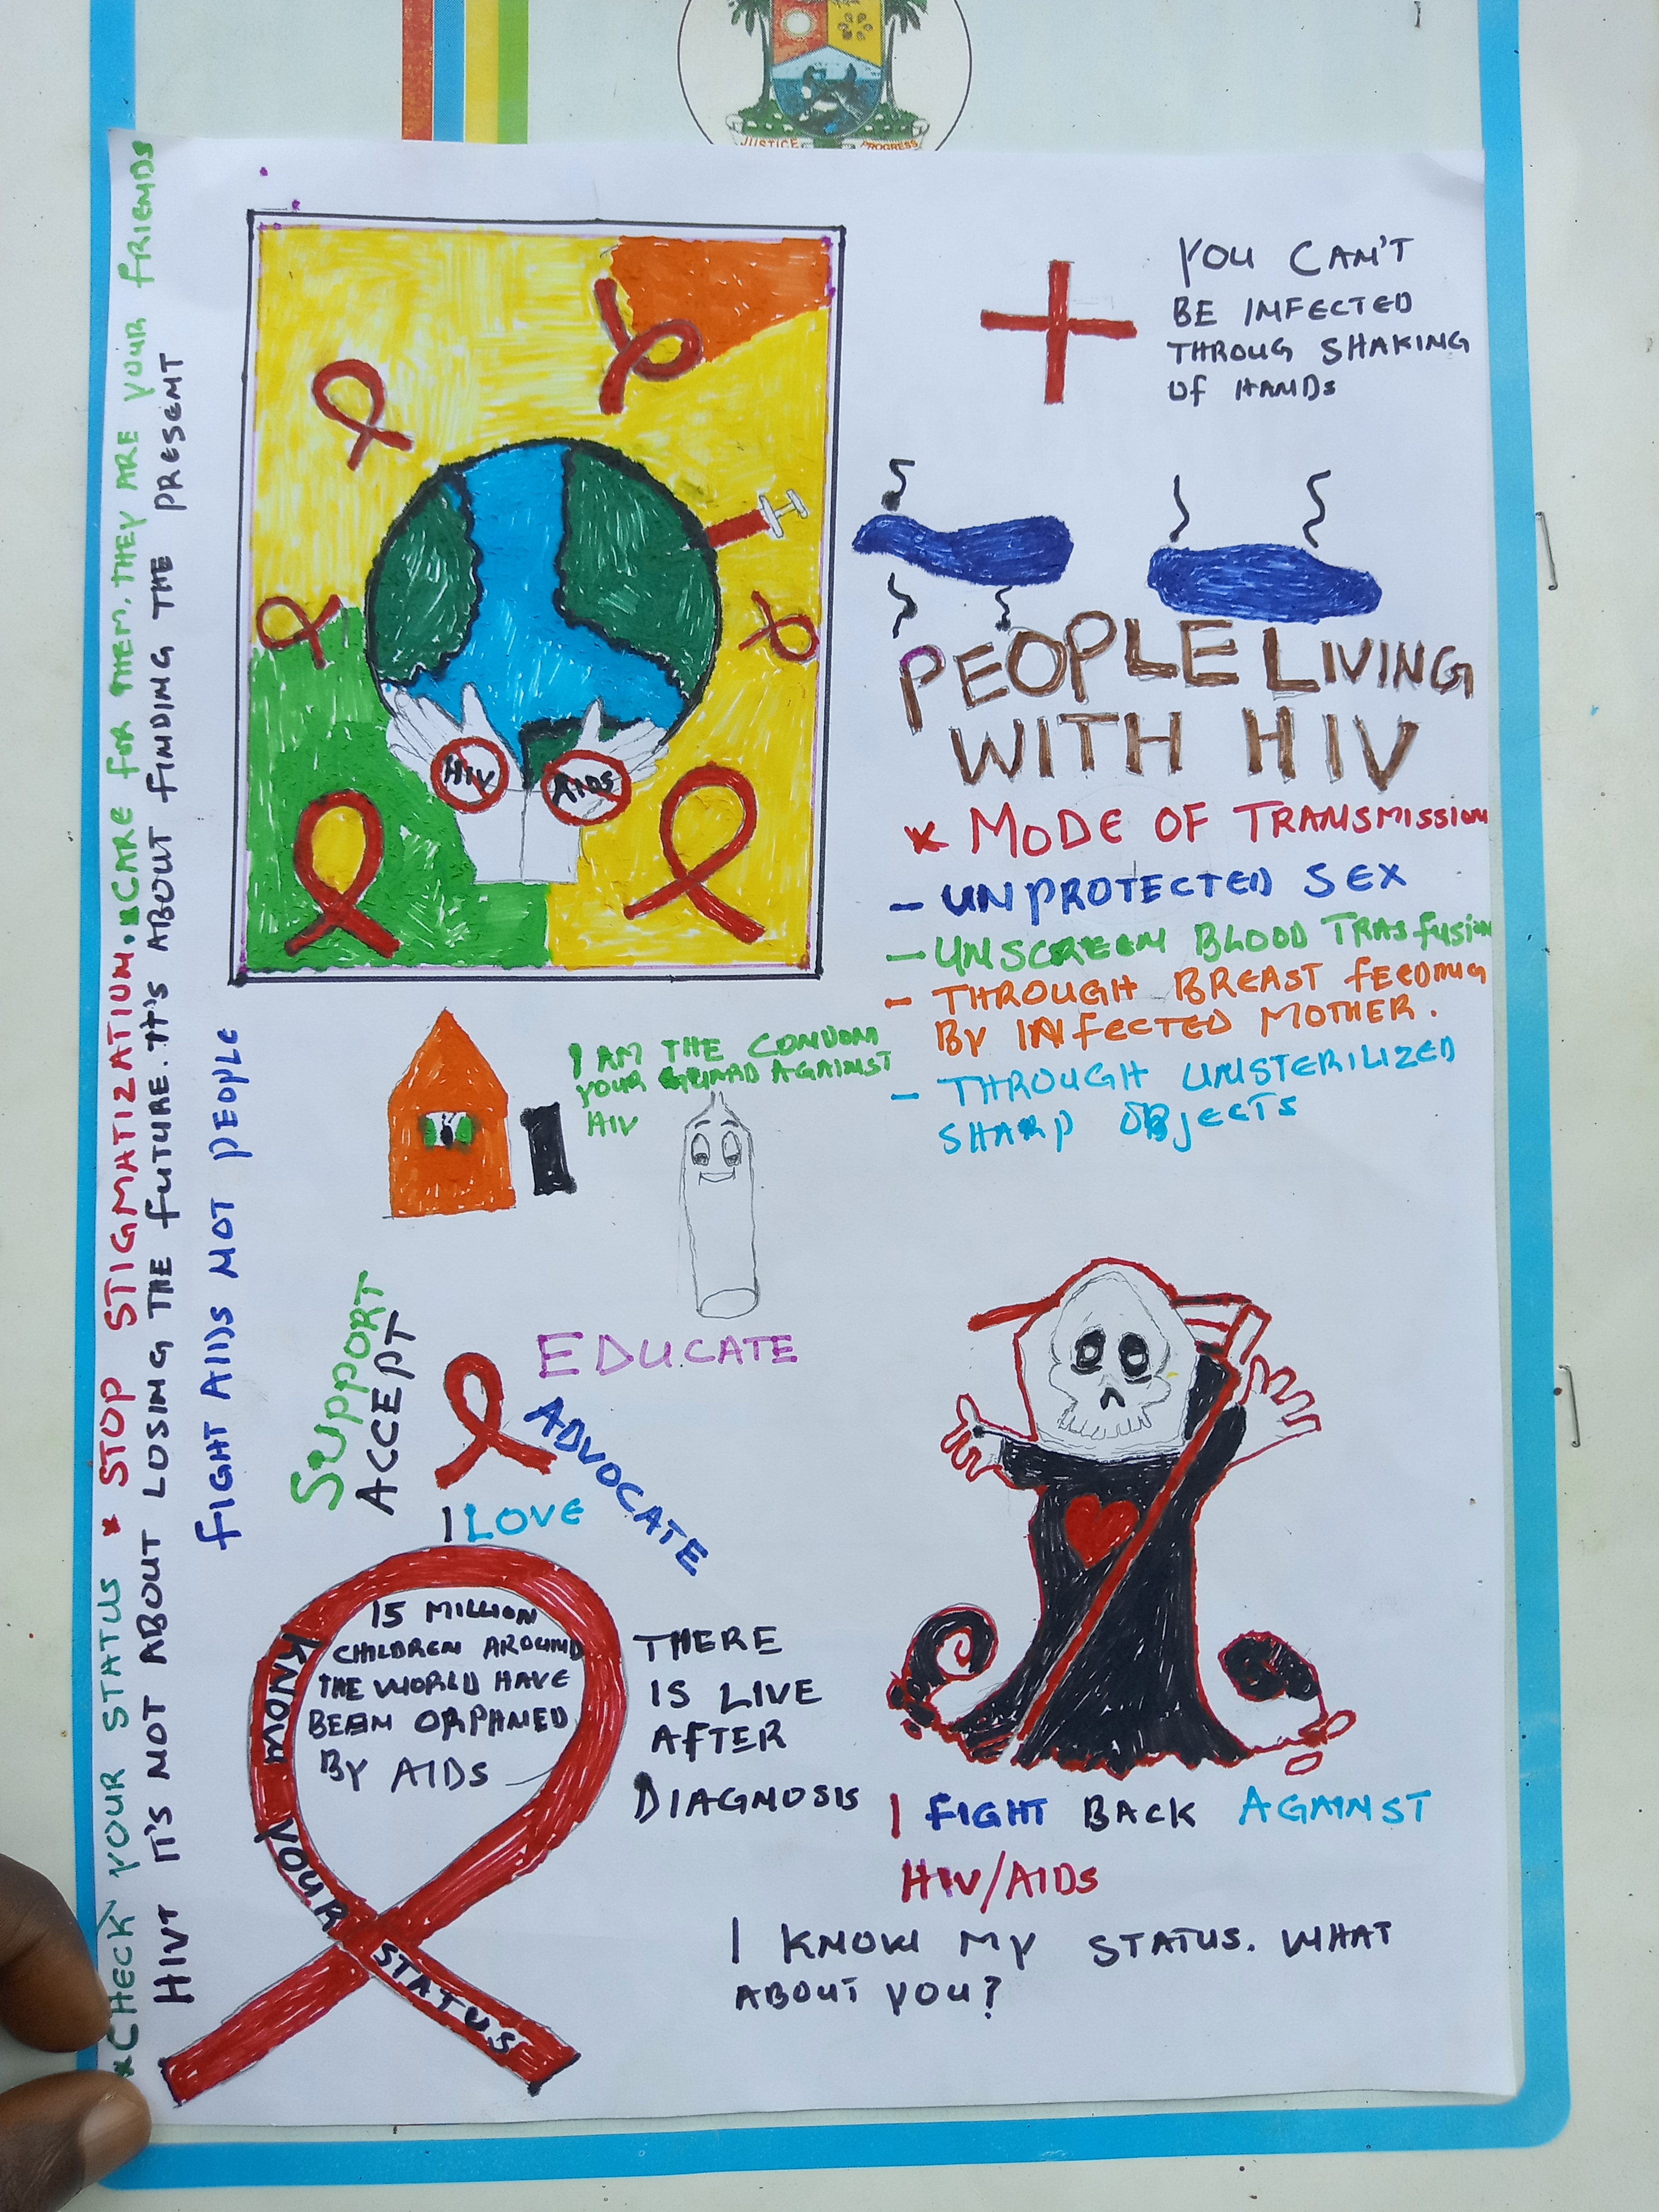 JUSTICE PROGRESS
YOU CAN'T
BE INFECTED
THROUG SHAKING
OF HANDS
HIV
AIDS
PEOPLE LIVING
WITH HIV
* MODE OF TRANSMISSION
- UNPROTECTED SEX
- UNSCREEN BLOOD TRASFUSION
- THROUGH BREAST FEEDING
BY INFECTED MOTHER.
- THROUGH UNSTERILIZED
SHARP OBJECTS
I AM THE CONDOM
YOUR GUARD AGAINST
HIV
*CHECK YOUR STATUS * STOP STIGMATIZATIUM.*CARE FOR THEM. THEY ARE YOUR FRIENDS
HIVT IT'S NOT ABOUT LOSING THE FUTURE. IT'S ABOUT FINDING THE PRESENT
FIGHT AIDS NOT PEOPLE
SUPPORT
ACCEPT
EDUCATE
ADVOCATE
I LOVE
15 MILLION
CHILDREN AROUND
THE WORLD HAVE
BEEN ORPHANED
BY AIDS
KNOW YOUR
STATUS
THERE
IS LIVE
AFTER
DIAGNOSIS
I FIGHT BACK AGAINST
HIV/AIDS
I KNOW MY STATUS. WHAT
ABOUT YOU?